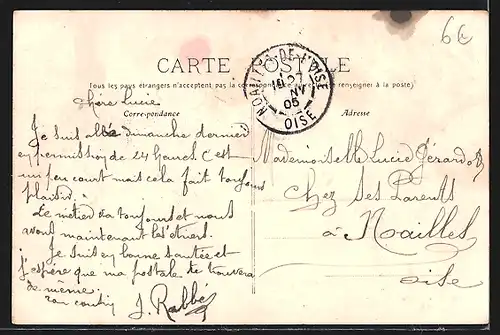 6€
CARTE POSTALE
Tous les pays étrangers n'acceptent pas la correspondance au recto (se renseigner à la poste)
NOAILLES-DE-L'OISE
NV
05
OISE
Correspondance
Adresse
Chère Lucie
Je suit allé dimanche dernier
en permission de 24 heures c'est
un peu court mais cela fait toujours
plaisir.
Le métier va toujours et nous
avons maintenant les étriers.
Je suis en bonne santée et
j'espère que ma postale te trouvera
de même.
ton cousin J. Rabbé
Mademoiselle Lucie Gérardot
Chez Ses Parents
à Noailles
Oise